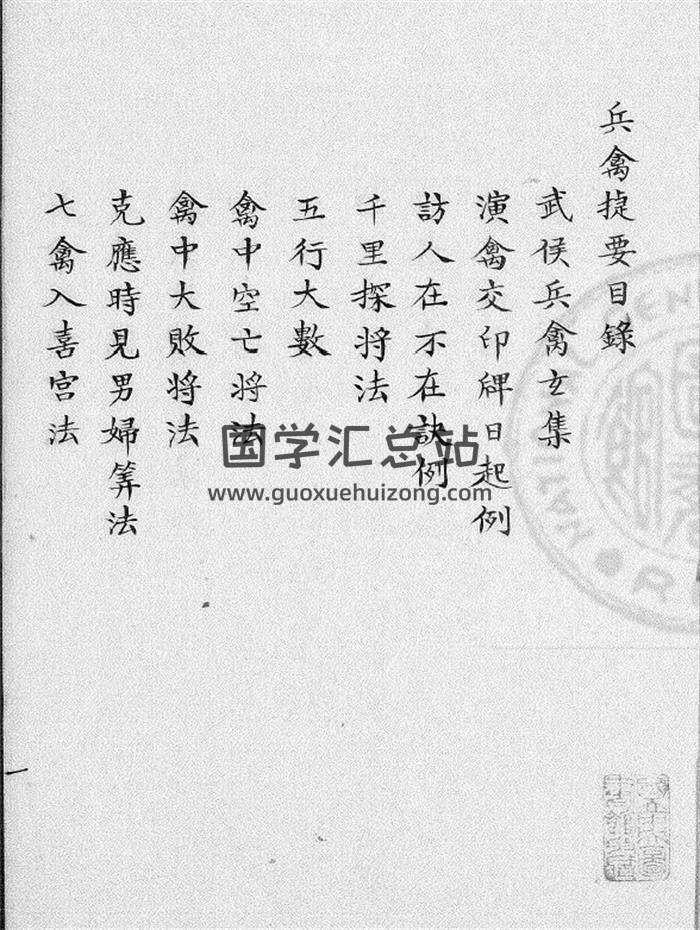 兵禽捷要目錄
武侯兵禽玄集
演禽交印牌日起例
訪人在不在訣例
千里探将法
五行大數
禽中空亡将法
禽中大敗将法
克應時見男婦筭法
七禽入喜宮法
国学汇总站
www.guoxuehuizong.com